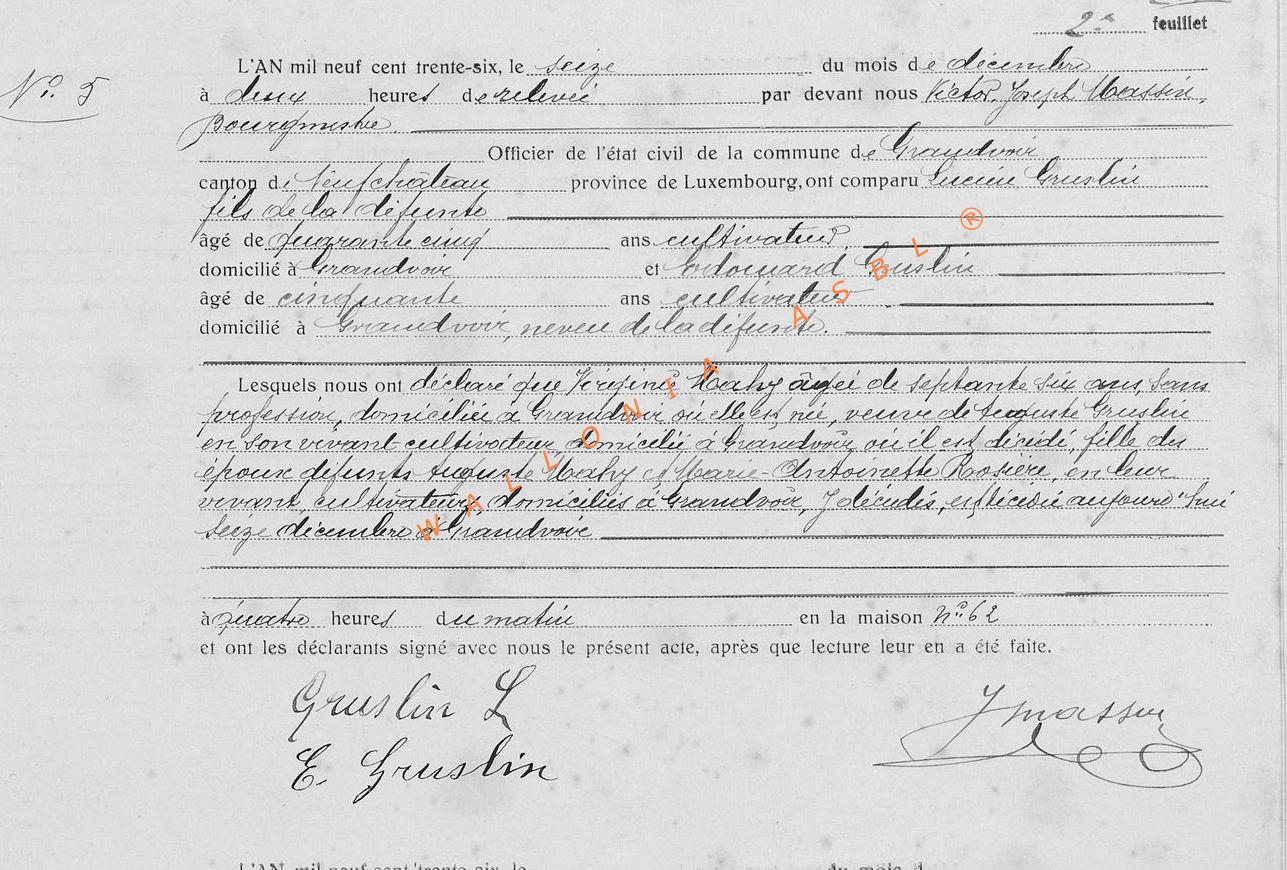 2e feuillet
L'AN mil neuf cent trente-six, le seize du mois de décembre
No 5
à deux heures de relevée par devant nous Victor Joseph Massin,
Bourgmestre
Officier de l'état civil de la commune de Grandvoir
canton de Neufchâteau province de Luxembourg, ont comparu Lucien Gruslin
fils de la défunte
âgé de quarante cinq ans cultivateur,
domicilié à Grandvoir et Edouard Gruslin
âgé de cinquante ans cultivateur
domicilié à Grandvoir, neveu de la défunte.
Lesquels nous ont déclaré que Virginie Mahy âgée de septante six ans, sans
profession, domiciliée à Grandvoir où elle est née, veuve de Auguste Gruslin
en son vivant cultivateur domicilié à Grandvoir, où il est décédé, fille des
époux défunts Auguste Mahy et Marie-Antoinette Rosière, en leur
vivant, cultivateurs, domiciliés à Grandvoir, y décédés, est décédée aujourd'hui
seize décembre à Grandvoir
à quatre heures du matin en la maison No 62
et ont les déclarants signé avec nous le présent acte, après que lecture leur en a été faite.
Gruslin L
J Massin
E. Gruslin
L'AN mil neuf cent trente-six, le du mois d
WALLONIA ASBL ®